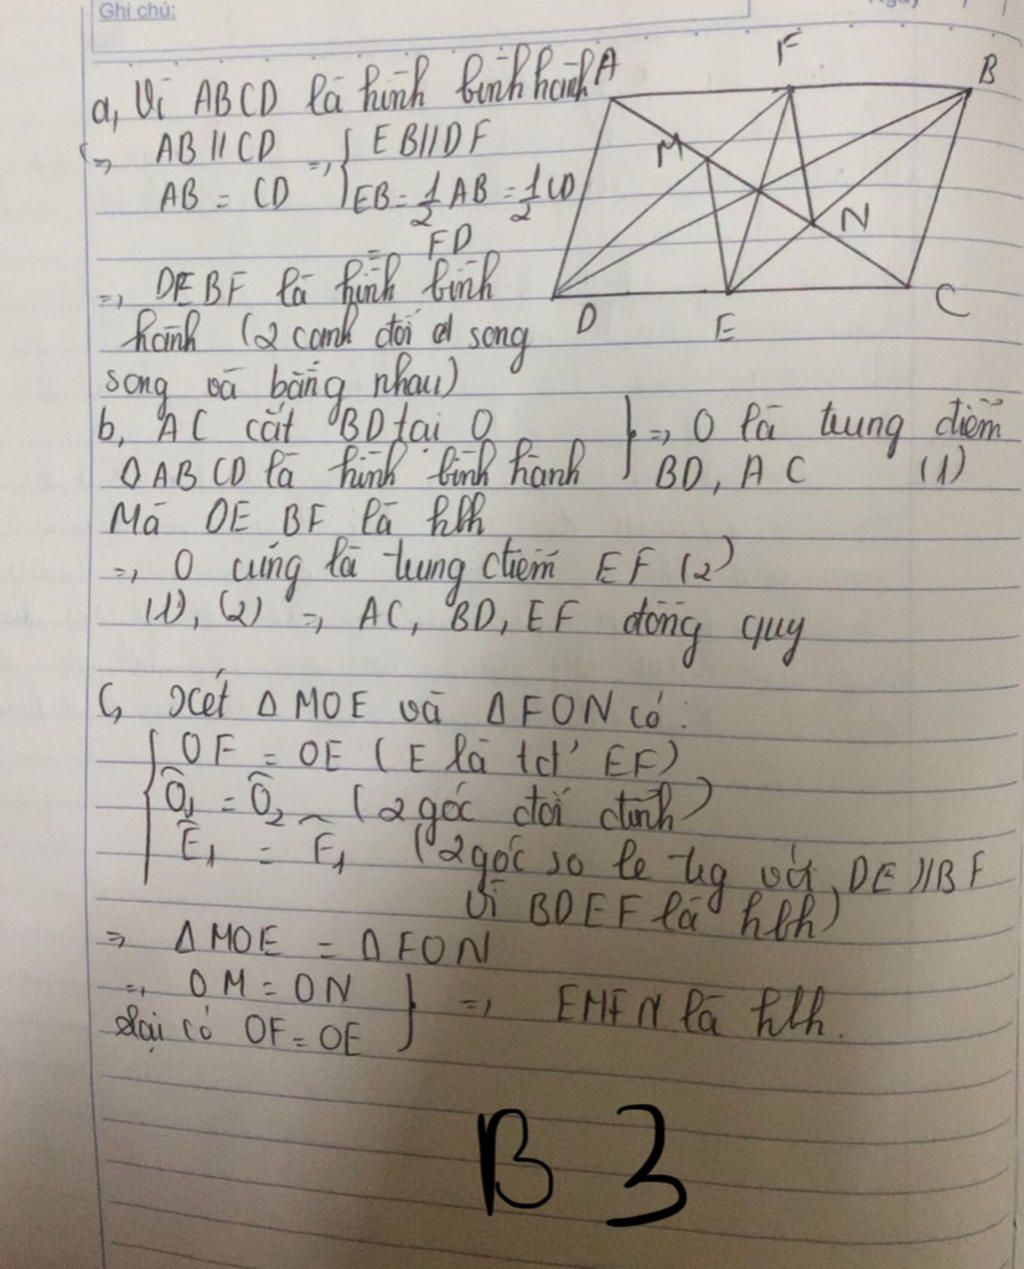 Ghi chú:
a, Vì ABCD là hình bình hành
=> AB // CD => { EB // DF
AB = CD EB = 1/2 AB = 1/2 CD
= FD
=> DEBF là hình bình
hành (2 cạnh đối song
song và bằng nhau)
A F B
M N
D E C
b, AC cắt BD tại O } => O là trung điểm
ABCD là hình bình hành BD, AC (1)
Mà DE BF là hbh
=> O cũng là trung điểm EF (2)
(1), (2) => AC, BD, EF đồng quy
c, Xét Δ MOE và Δ FON có:
{ OF = OE (E là tđ' EF)
Ô1 = Ô2 (2 góc đối đỉnh)
Ê1 = F̂1 (2 góc so le trg với DE // BF
vì BDEF là hbh)
=> Δ MOE = Δ FON
=> OM = ON } => EMFN là hbh.
Lại có OF = OE
B 3